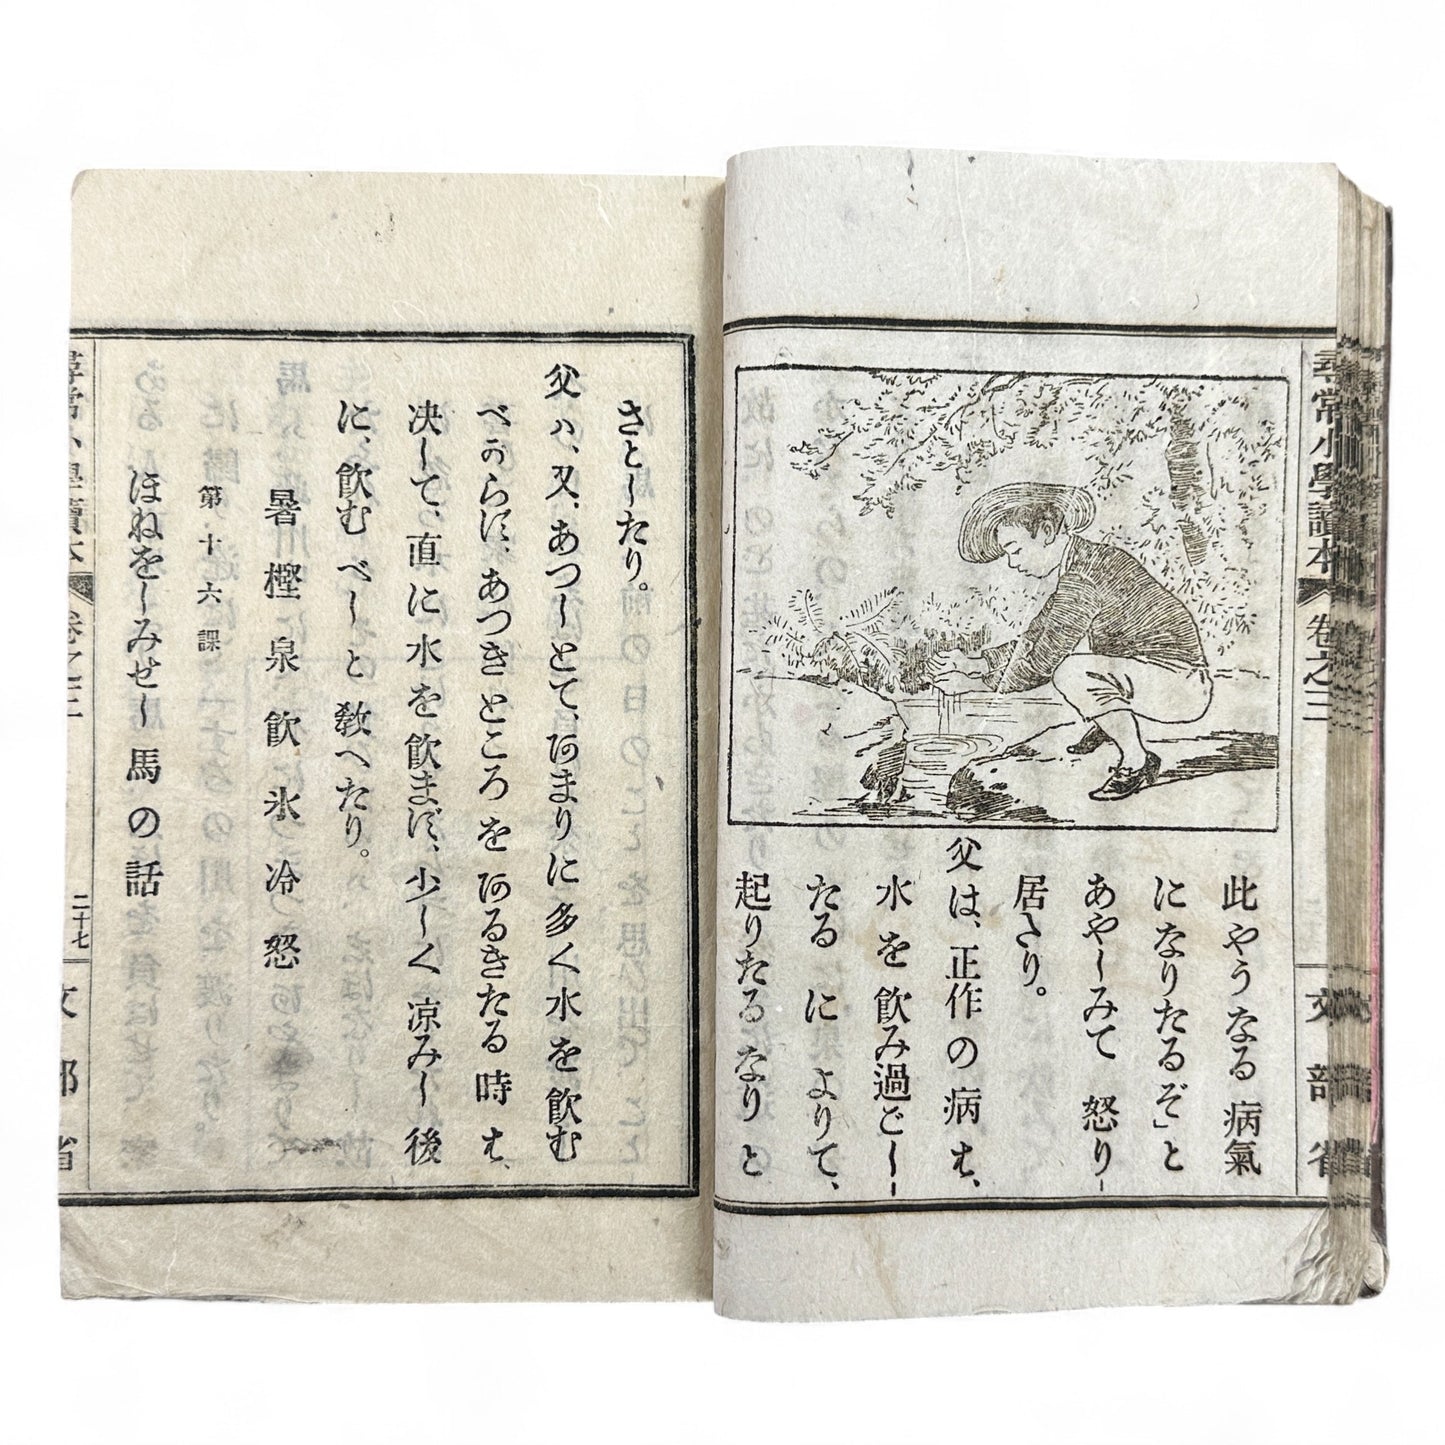 尋常小學讀本
卷之三
文部省
此やうなる病氣
になりたるぞ」と
あやしみて怒り
居たり。
父は、正作の病は、
水を飲み過ごし
たるによりて、
起りたるなりと
さとしたり。
父ハ、又、あつしとて、あまりに多く水を飲む
べからず、あつきところをあるきたる時は、
決して、直に水を飲まず、少しく凉みし後
に、飲むべしと敎へたり。
暑樫泉飲氷冷怒
第十六課
ほねをしみせし馬の話
尋常小學讀本
卷之三
二十七
文部省